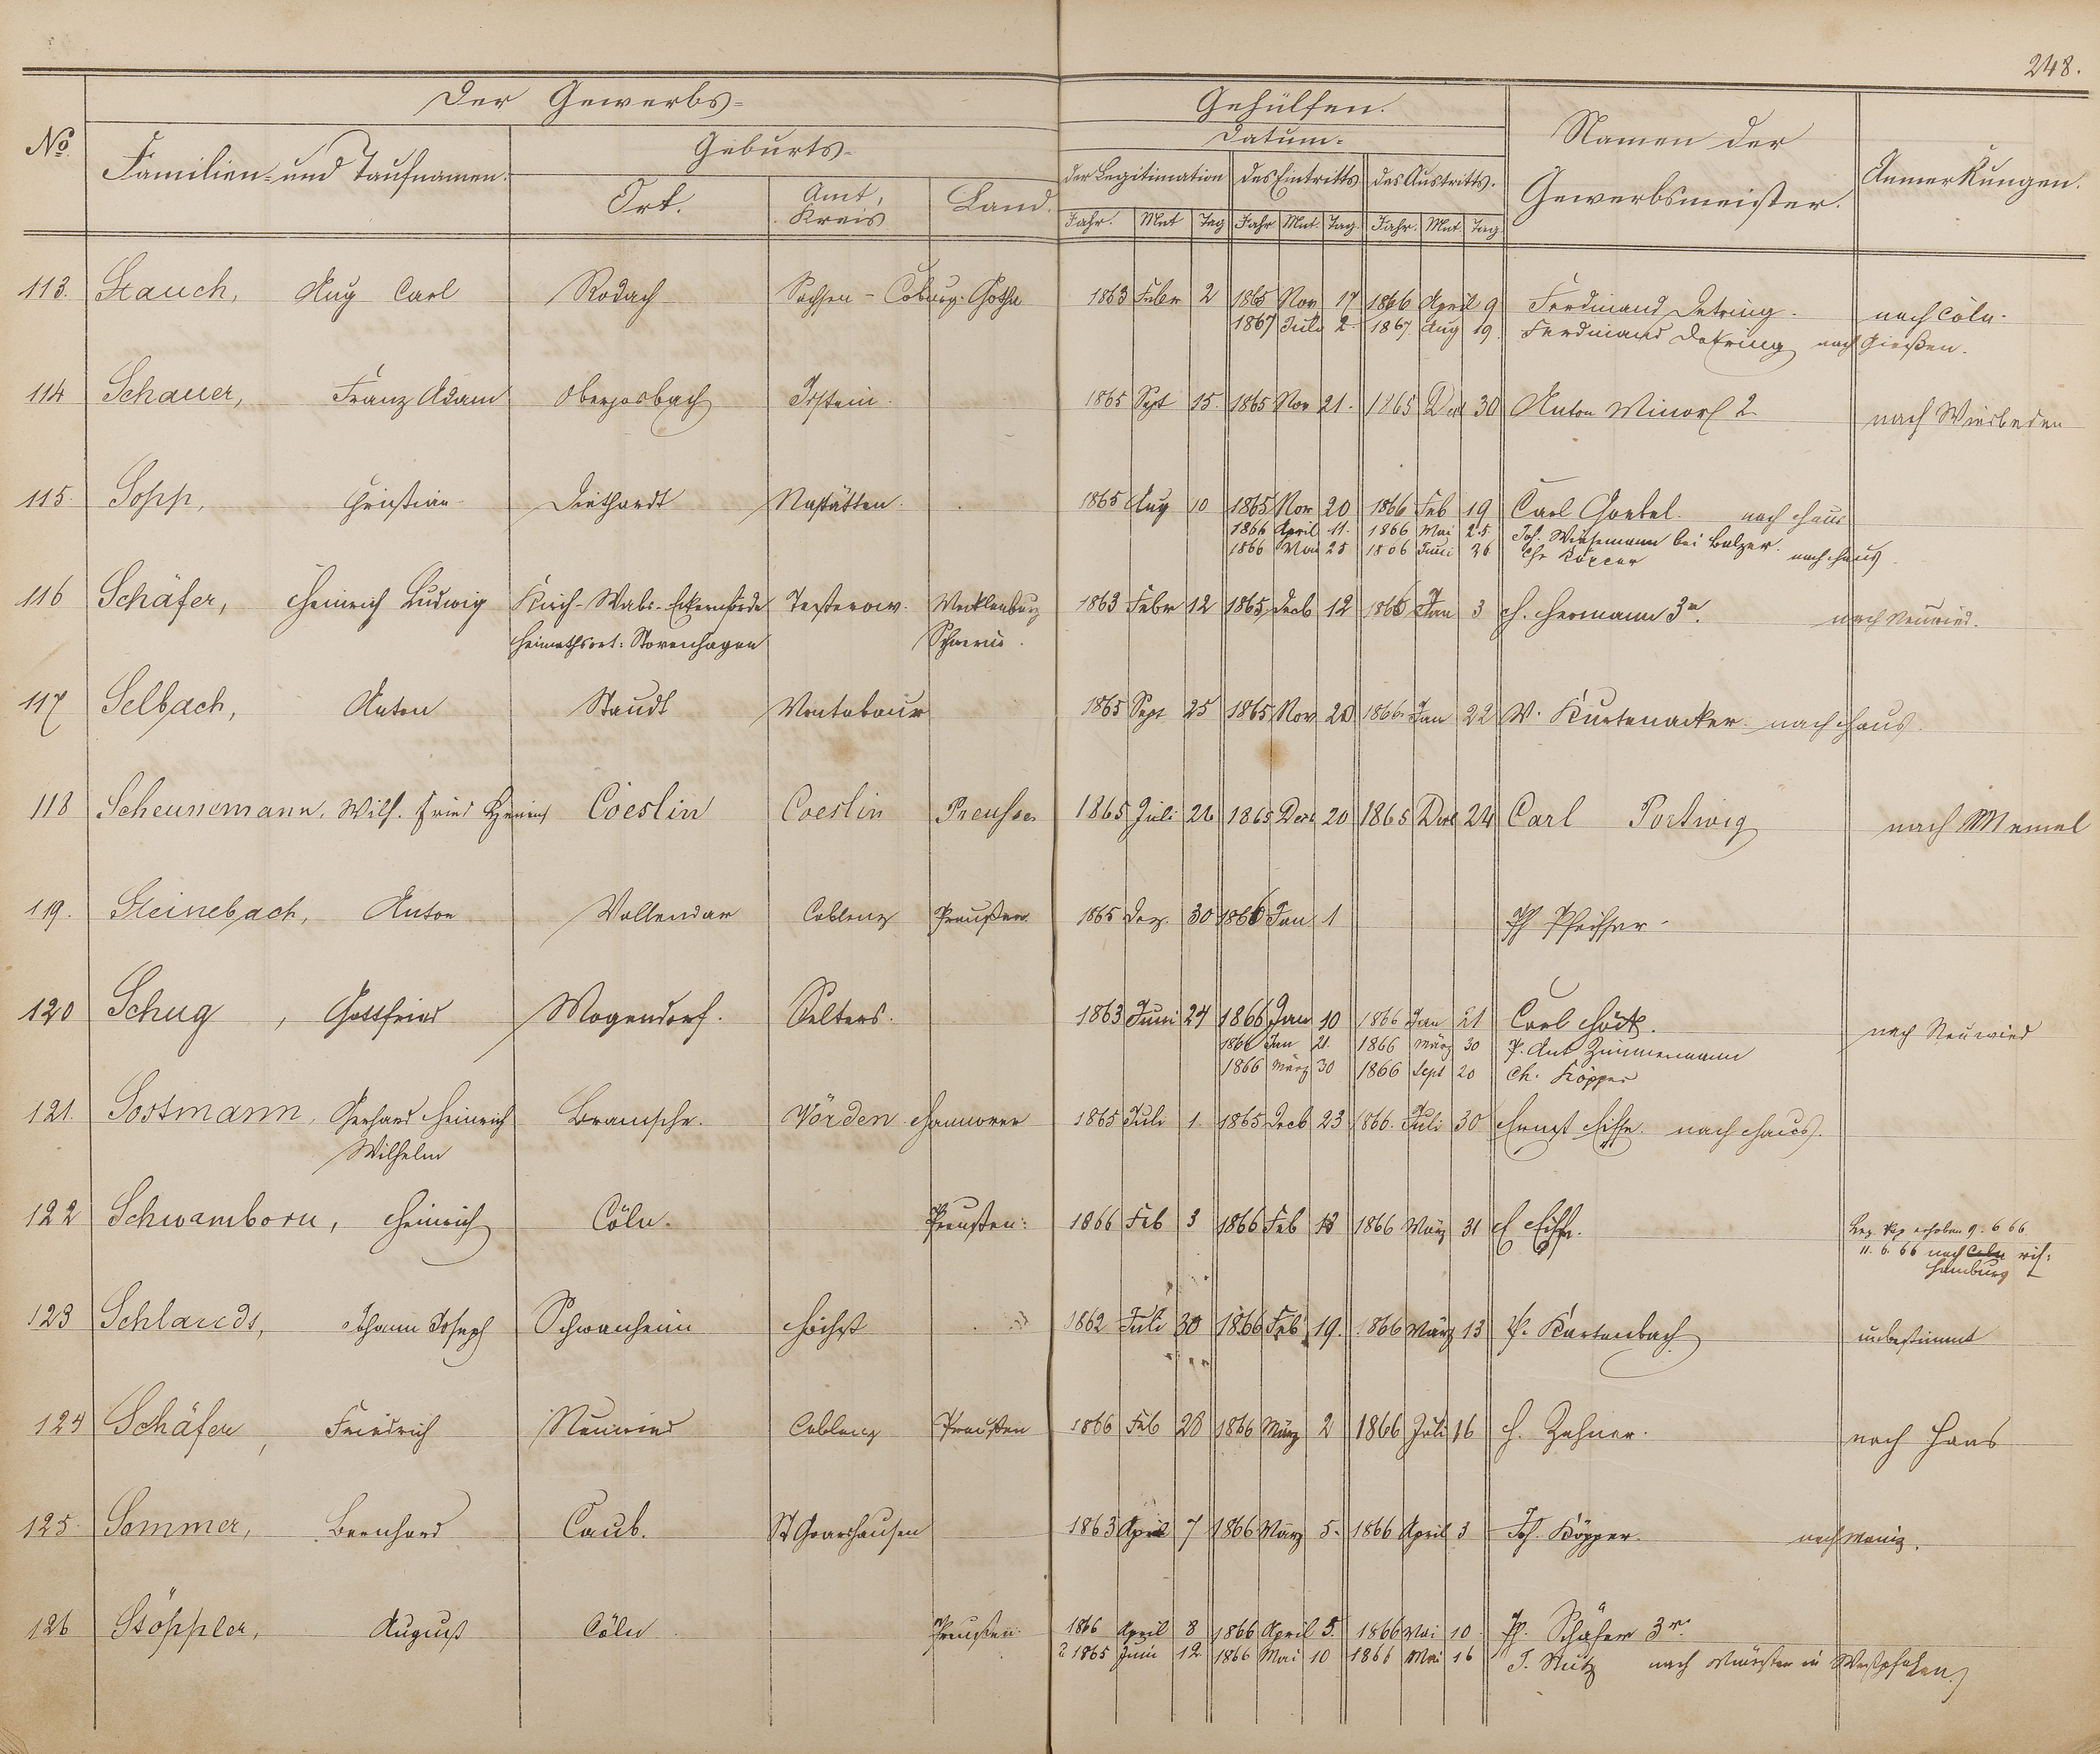 248.
Der Gewerbs- Gehülfen.
No. Familien- und Taufnamen. Geburts- Datum. Namen der Gewerbsmeister. Anmerkungen.
Ort. Amt, Kreis Land. der Legitimation des Eintritts des Austritts.
Jahr. Mnt Tag Jahr Mnt. Tag. Jahr. Mnt. Tag.
113. Stauch, Aug Carl Rodach Sachsen-Coburg-Gotha 1863 Febr 2 1865 Nov 17 1866 April 9 Ferdinand Detring. nach Cöln.
1867 Juli 2. 1867 Aug 19. Ferdinand Detring nach Gießen.
114 Schauer, Franz Adam Oberjosbach Idstein. 1865 Sept 15. 1865 Nov 21. 1865 Dec 30 Anton Minor 2. nach Wiesbaden
115. Sopp, Christian Diethardt Nastätten. 1865 Aug 10 1865 Nov 20 1866 Feb 19 Carl Goebel. nach Haus
1866 April 11. 1866 Mai 25 Joh. Wiesemann bei Balzer.
1866 Mai 25 1866 Juni 26 Chr nach Haus.
116 Schäfer, Heinrich Ludwig Kirch-Wabs-Eckernförde Teßterow. Mecklenburg 1863 Febr 12 1865 Decb 12 1866 Jan 3 H. Hermann 3r. nach Neuwied.
Heimathsort: Stovenhagen Schwerin.
117 Selbach, Anton Staudt Montabaur 1865 Sept 25 1865 Nov 20 1866 Jan 22 W. Kurtenacker nach Haus.
118 Scheunemann, Wilh. Fried Coeslin Coeslin Preußen 1865 Juli 26 1865 Dec 20 1865 Dec 24 Carl Portwig nach Memel
119. Steinebach, Anton Vallendar Coblenz Preußen. 1865 Dez. 30 1866 Jan 1 Pfeiffer
120 Schug, Gottfried Mogendorf. Selters. 1863 Juni 24 1866 Jan 10 1866 Jan 21 Carl nach Neuwied
1866 Jan 21. 1866 März 30 P. Ant Zimmermann
1866 März 30 1866 Sept 20 Ch. Köpper
121. Sostmann, Gerhard Heinrich Bramsche. Vörden Hannover 1865 Juli 1. 1865 Decb 23 1866. Juli 30 Ernst nach Haus.
Wilhelm
122 Schwamborn, Heinrich Cöln. Preußen. 1866 Feb 3 1866 Feb 13 1866 März 31 erhoben 9. 6 66
11. 6. 66 nach Cöln
Hamburg
123 Schlaeds, Johann Joseph Schwanheim Höchst 1862 Juli 30 1866 Feb 19. 1866 März 13 P. Kurtenbach unbestimmt
124 Schäfer, Friedrich Neuwied Coblenz Preußen 1866 Feb 28 1866 März 2 1866 Juli 16 H. Zehner. nach Haus
125. Sommer, Bernhard Caub. St Goarshausen 1863 April 7 1866 März 5. 1866 April 3 Joh. Köpper. nach Mainz.
126 Stöppler, August Cöln Preußen. 1866 April 8 1866 April 5. 1866 Mai 10 Schäfer 3r.
1865 Juni 12. 1866 Mai 10 1866 Mai 16 J. Stutz nach Münster in Westphalen.